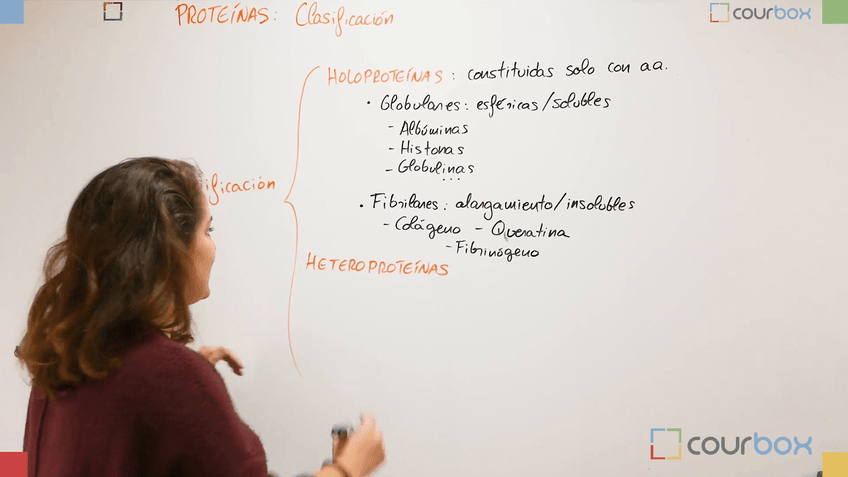 PROTEÍNAS: Clasificación
courbox
HOLOPROTEÍNAS: constituidas solo con aa.
• Globulares: esféricas/solubles
- Albúminas
- Histonas
- Globulinas
...
ificación
• Fibrilares: alargamiento/insolubles
- Colágeno - Queratina
- Fibrinógeno
HETEROPROTEÍNAS
courbox